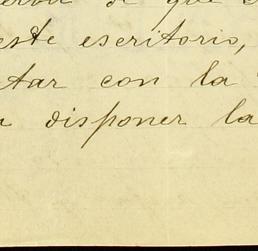 de que
este escritorio,
tar con la
disponer la